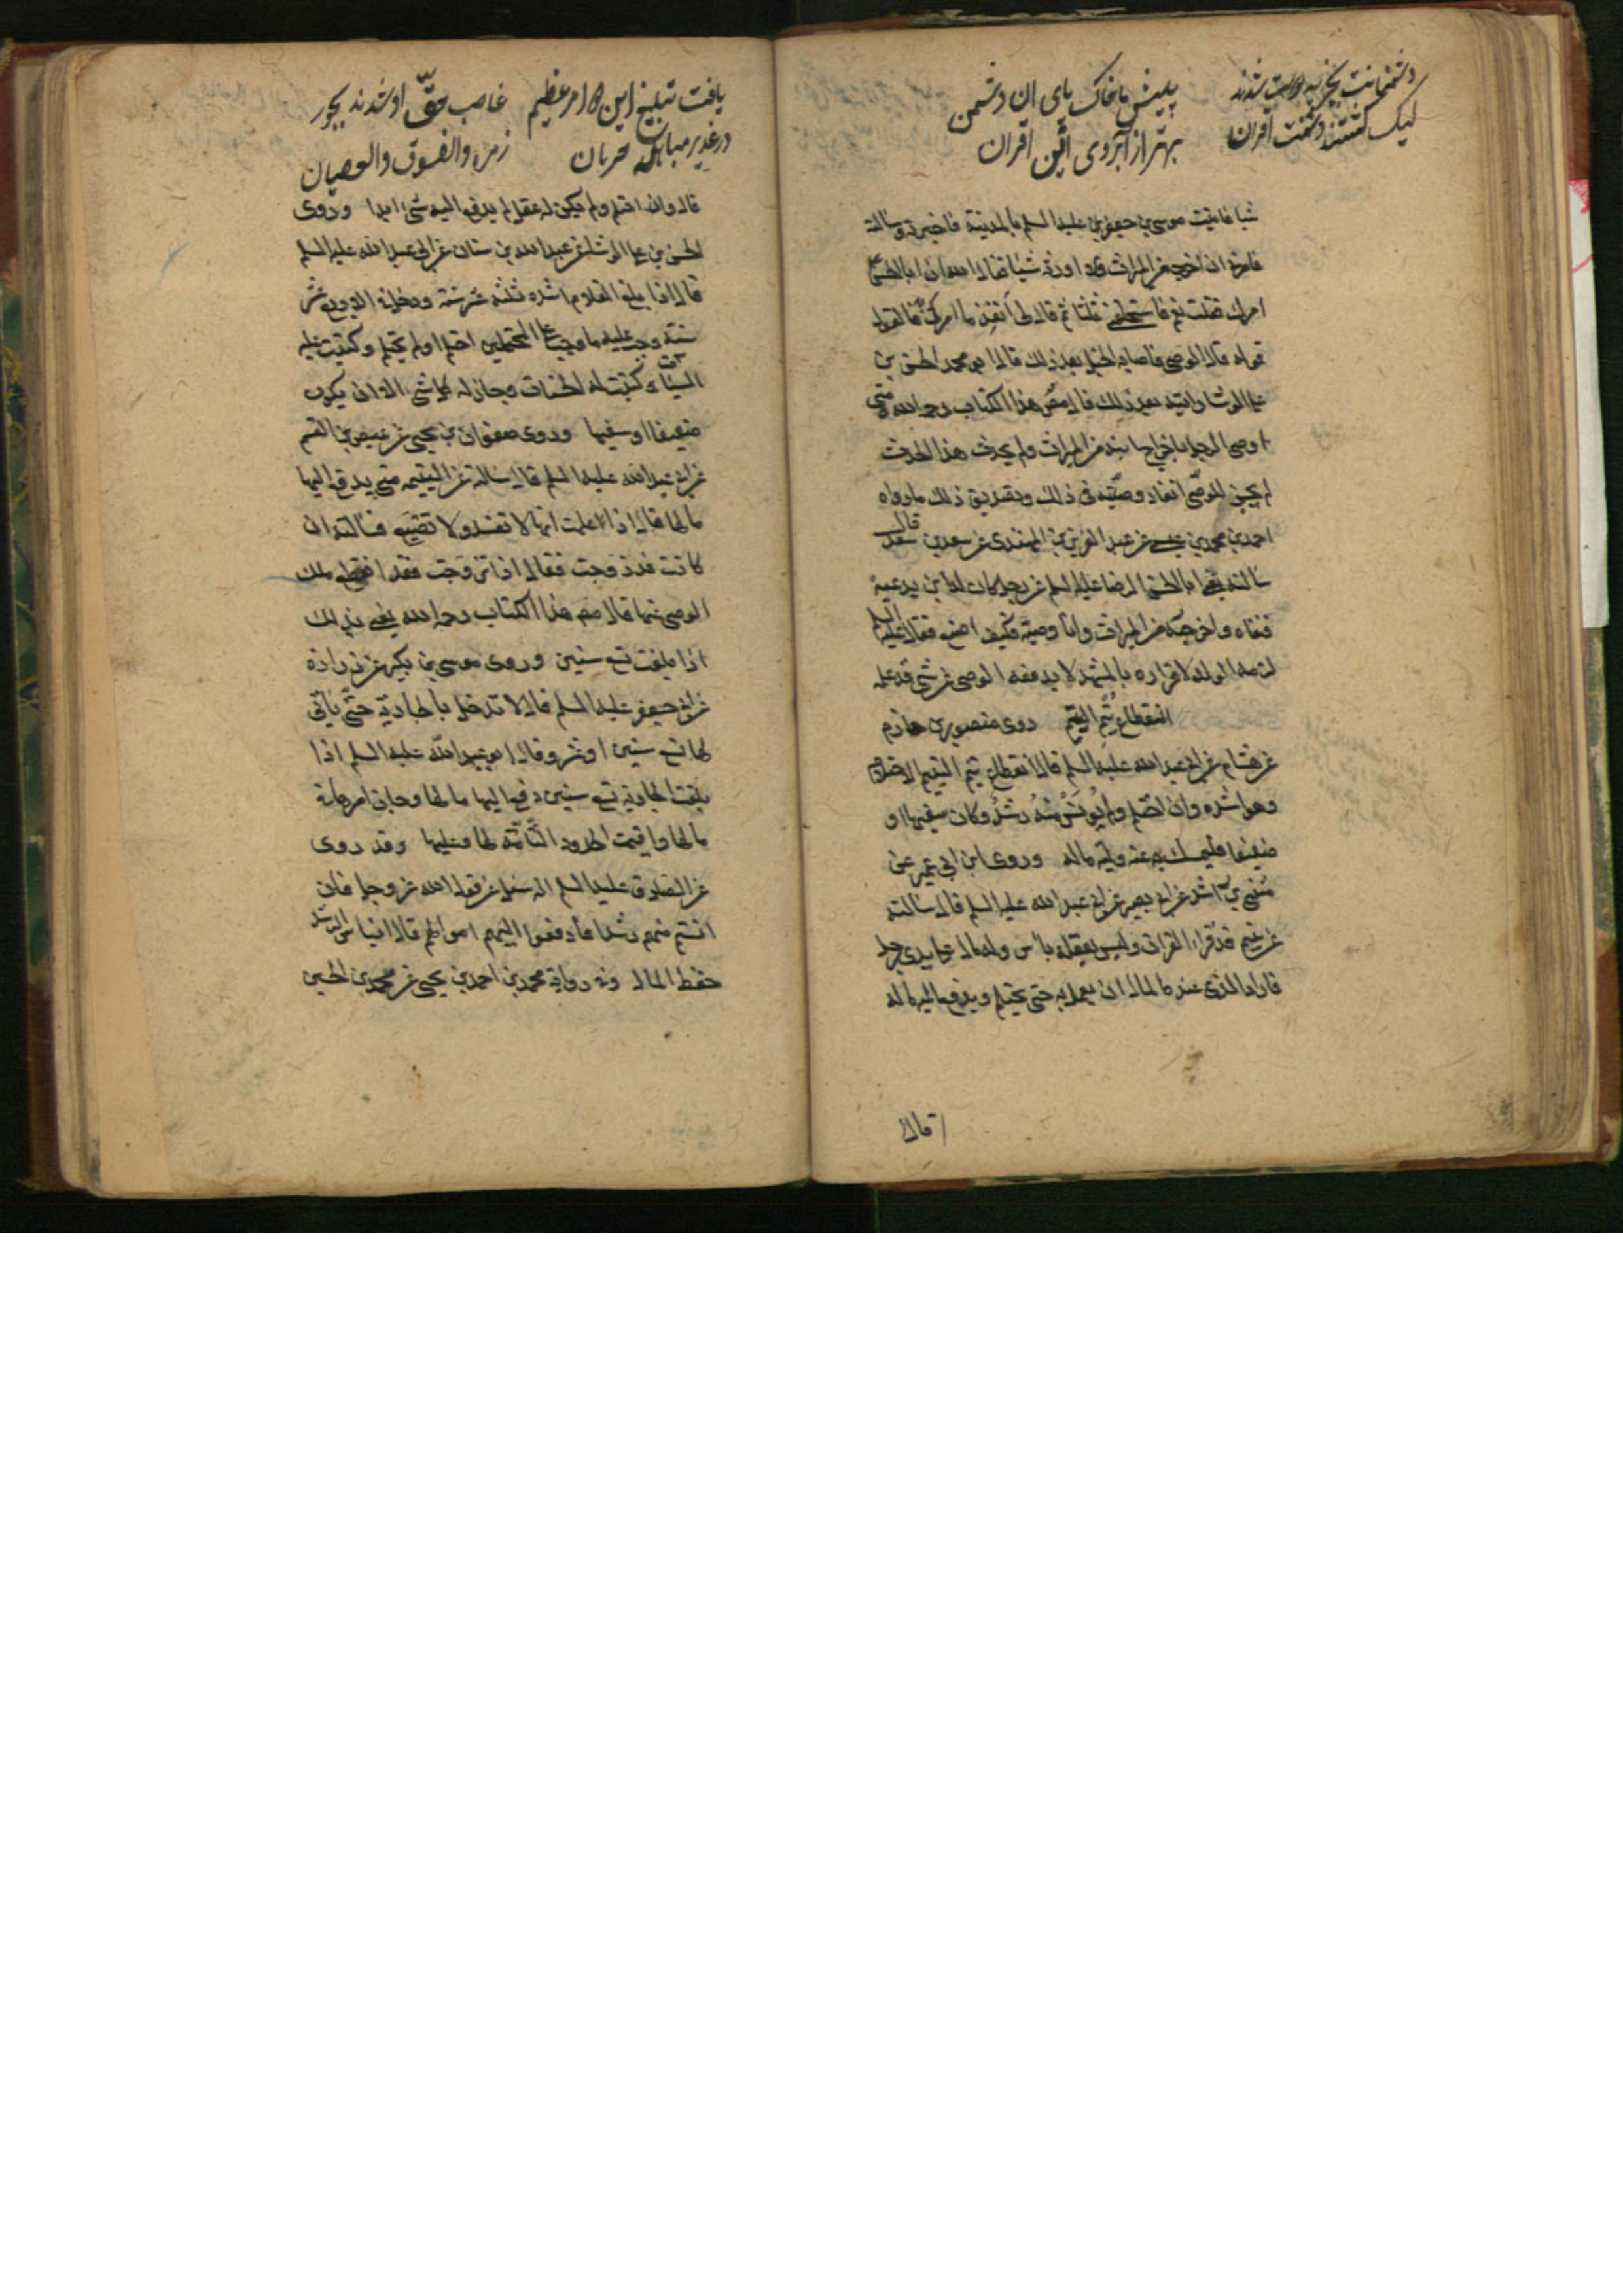 دشمنانت بخر به راست شدند
لیک گشتند و گفت اقران
پیش ما خاک پای ان دشمن
بهتر از آبروی این اقران
شيا فاتيت موسى بن جعفر بن عليه السلم بالمدينة فاخبرته وسالته
فامرنى ان اخرجه من الميراث ولا اورثه شيئا فقال الله ان ابا الحسن
امرك فقلت نعم فاستحلفنى ثلثا ثم قال لى انفذ ما امرك فالقول
قوله قال الوصى فاصابه الخبل بعد ذلك قال ابو محمد الحسن بن
على الوشا رايته بعد ذلك قال مص هذا الكتاب رحمه الله متى
اوصى الرجل باخراج ابنه من الميراث ولم يحدث هذا الحدث
لم يجز للوصى انفاذ وصيته فى ذلك وتصديق ذلك ما رواه
احمد بن محمد بن عيسى عن عبد العزيز بن المهتدى عن سعد بن سعد قال
سالته يعنى ابا الحسن الرضا عليه السلم عن رجل كان له ابن يدعيه
فنفاه واخرجه من الميراث وانا وصيه فكيف اصنع فقال عليه السلم
لزمه الولد لاقراره بالمشهد لا يدفعه الوصى عن شى قد علمه
انقطاع يُتم اليتيم روى منصور بن حازم
عن هشام عن ابى عبد الله عليه السلم قال انقطاع يتم اليتيم الاحتلام
وهو اشده وان احتلم ولم يُونَسْ منه رشدُ وكان سفيها او
ضعيفا فليمسك عنه وليه ماله وروى ابن ابى عمير عن
مُثنى بن راشد عن ابى بصير عن ابى عبد الله عليه السلم قال سالته
عن يتيم قد قراء القران وليس بعقله باس وله مال على يدى رجل
فاراد الذى عنده المال ان يعمل به حتى يحتلم ويدفع اليه ماله
قال
یافت تبلیغ این امر عظیم
در غدیر مباهله
غاصب حقّ او شدند بجور
زمره والفسوق والعصیان
قال وان احتلم ولم يكن له عقل لم يدفع اليه شىء ابدا وروى
الحسن بن على الوشا عن عبد الله بن سنان عن ابى عبد الله عليه السلم
قال اذا بلغ الغلام اشده ثلثه عشر سنة ودخل فى الاربع عشر
سنة وجب عليه ما وجب على المحتلمين احتلم او لم يحتلم وكتبت عليه
السيئات وكتبت له الحسنات وجاز له كل شى الا ان يكون
ضعيفا او سفيها وروى صفوان بن يحيى عن عيص بن القسم
عن ابى عبد الله عليه السلم قال سالته عن اليتيمه متى يدفع اليها
مالها قال اذا علمت انها لا تفسد ولا تضيع فسالته ان
كانت قد زوجت فقال اذا تزوجت فقد انقطع ملك
الوصى عنها قال مص هذا الكتاب رحمه الله يعنى بذلك
اذا بلغت تسع سنين وروى موسى بن بكير عن زرارة
عن ابى جعفر عليه السلم قال لا تدخل بالجارية حتّى ياتى
لها تسع سنين او عشر وقال ابو عبد الله عليه السلم اذا
بلغت الجارية تسع سنين دفع اليها مالها وجاز امرها فى
مالها واقيمت الحدود التّامّة لها وعليها وقد روى
عن الصادق عليه السلم انه سئل عن قول الله عز وجل فان
انستم منهم رشدا فادفعوا اليهم اموالهم قال ايناس الرشد
حفظ المال وفى رواية محمد بن احمد بن يحيى عن محمد بن الحسين